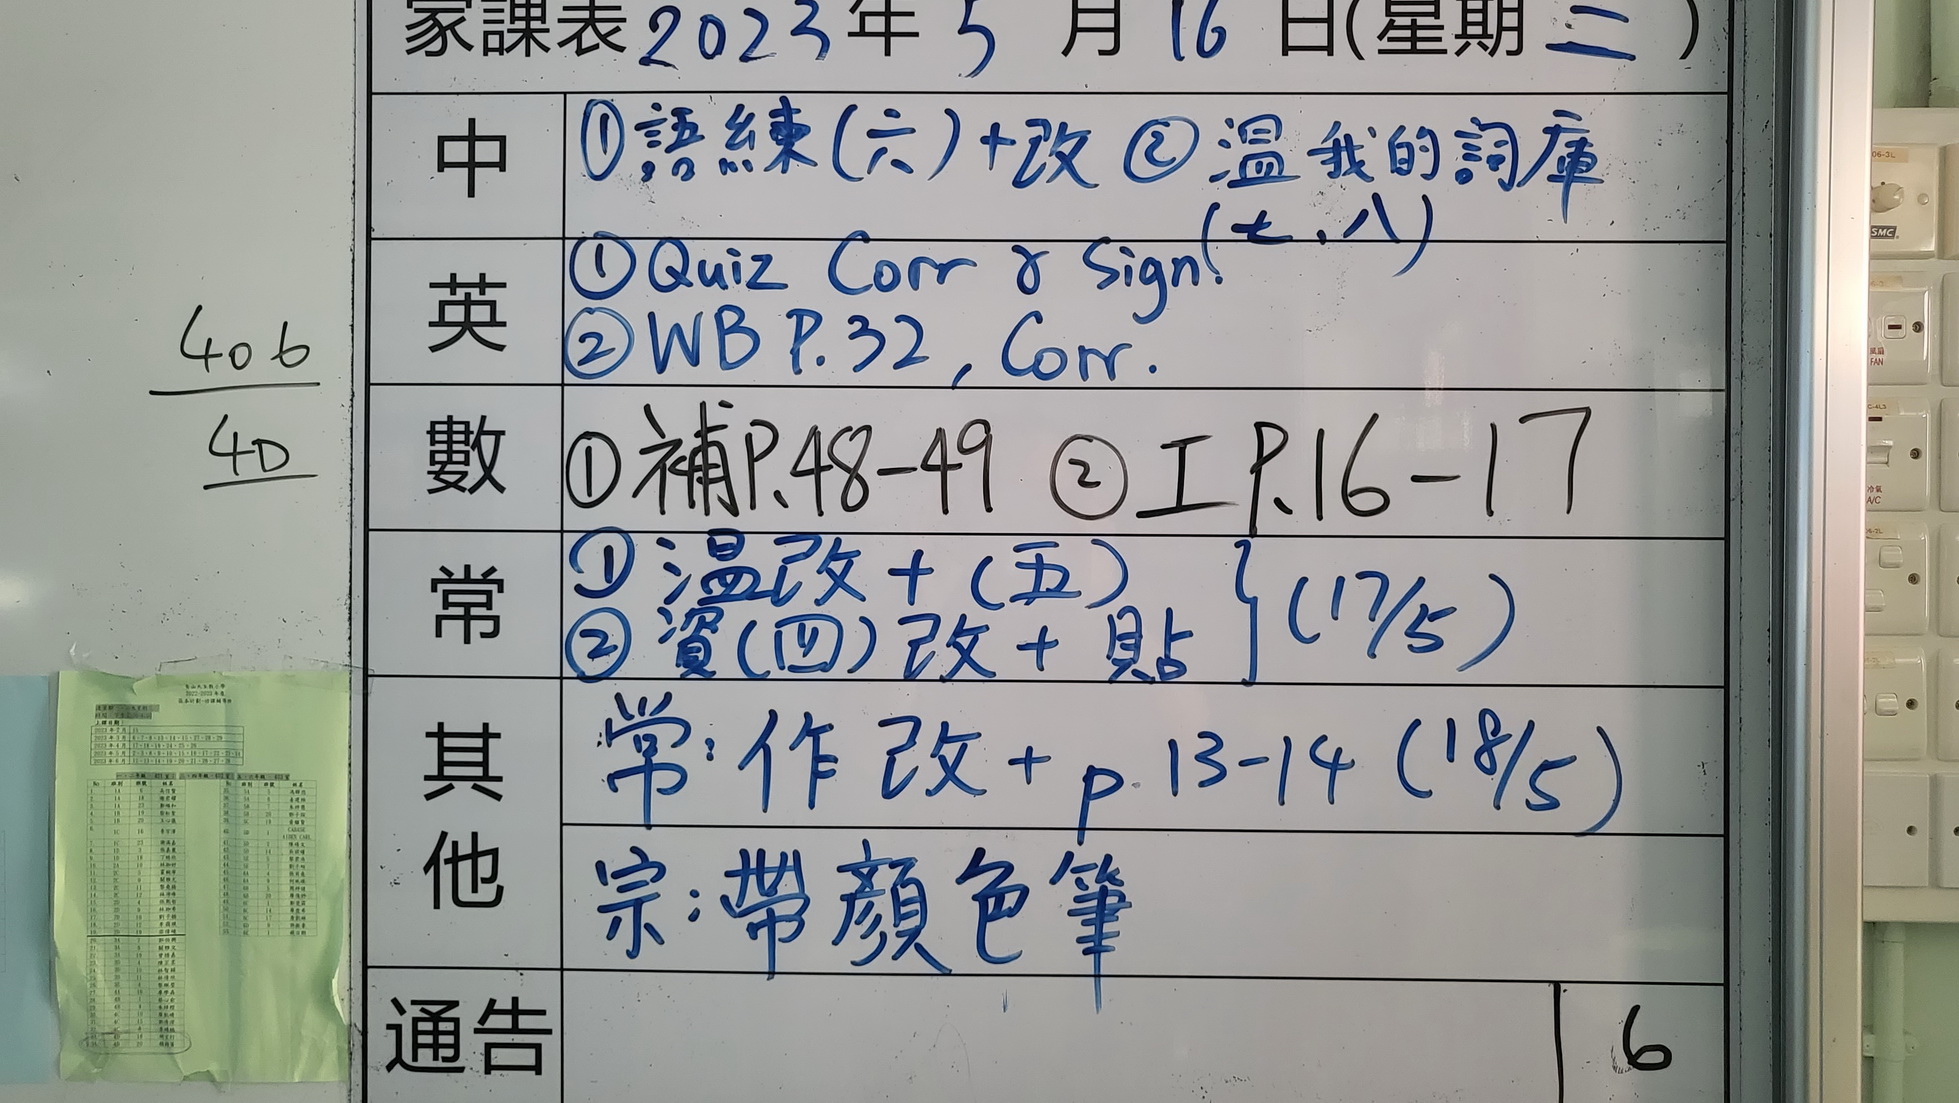 家課表 2023 年 5 月 16 日(星期 二 )
中
①語練(六)+改 ②溫我的詞庫
(七、八)
英
①Quiz Corr & Sign.
②WB P.32, Corr.
406
40
數
①補P.48-49 ②工P.16-17
常
①溫改+(五)
②資(四)改+貼
(17/5)
其他
常:作改+p.13-14 (18/5)
宗:帶顏色筆
通告
6
SMC
風扇
FAN
冷氣
A/C